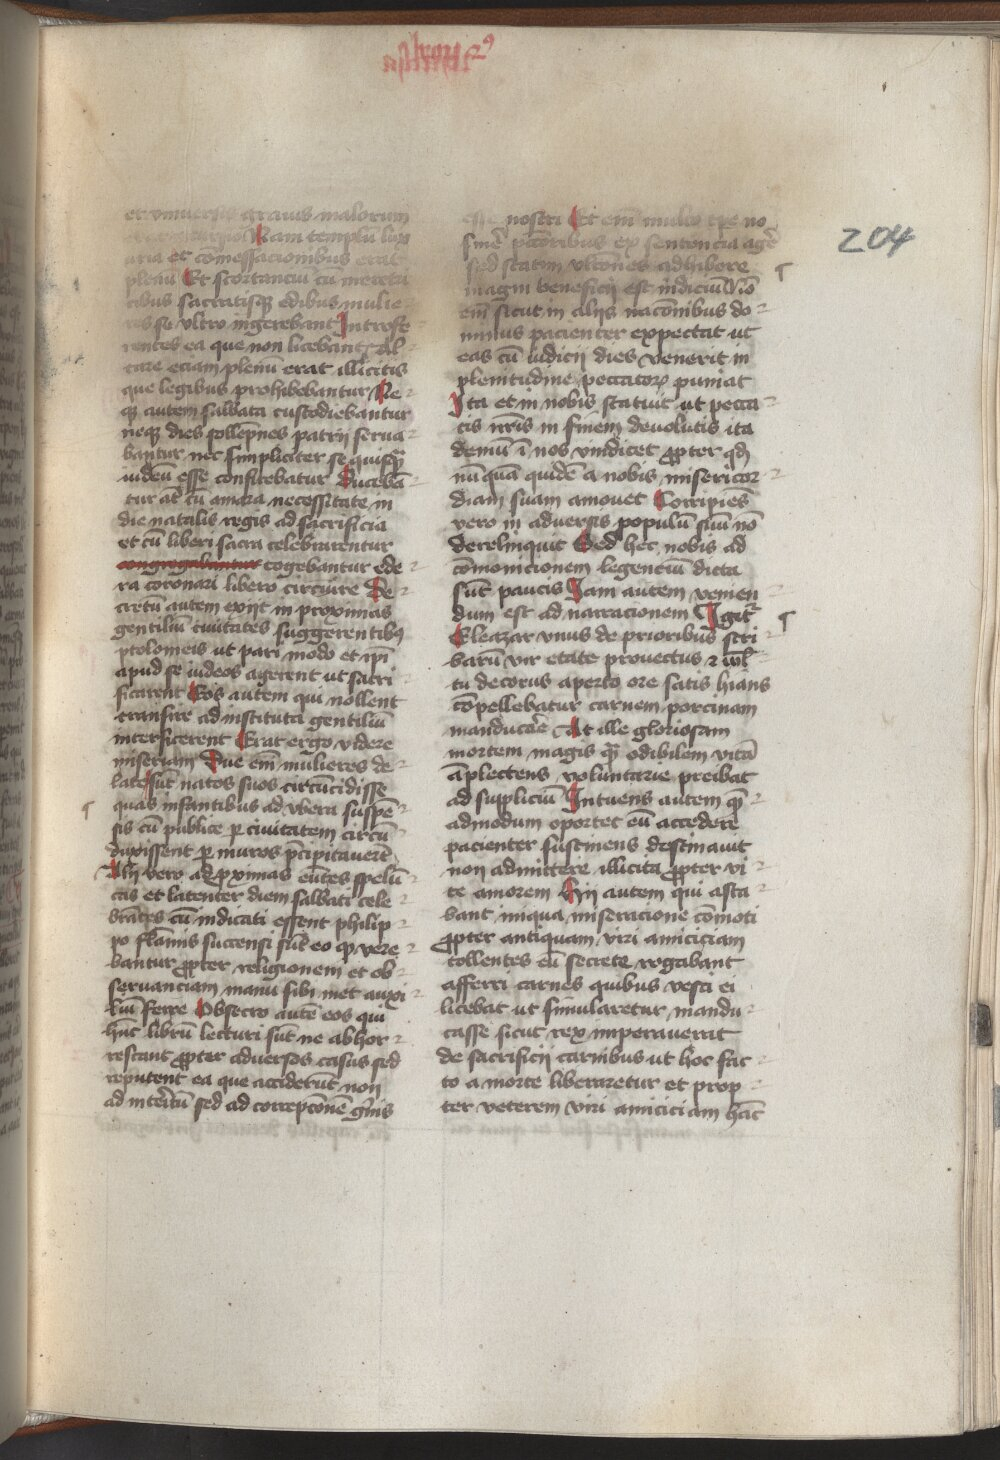 204
et vniuersis grauis malorum
Nam templū luxu
uria et comessacionibus erat
plenū Et scortanciū cū meretri
cibus sacratisqꝫ edibus mulie
res se vltro ingerebant Introfe
rentes ea que non licebant Al
tare eciam plenū erat illicitis
que legibus prohibebantur Ne
qꝫ autem sabbata custodiebantur
neqꝫ dies sollēpnes patrij serua
bantur nec simpliciter se quisqꝫ̄
iudeū esse confitebatur Duceba
tur at̄ cū amara necessitate in
die natalis regis ad sacrificia
et cū liberi sacra celebrarentur
congregabuntur cogebantur ede
ra coronari libero circuire De
cretū autem exijt in proximas
gentiliū ciuitates suggerentibꝰ
ptolomeis ut pari modo et ip̄i
apud se iudeos agerent ut sacri
ficarent Eos autem qui nollent
transire ad instituta gentiliū
interficerent Erat ergo videre
miseriam Due em̄ mulieres de
late sūt natos suos circūcidisse
quas infantibus ad vbera suspē
sis cū publice ꝑ ciuitatem circū
duxissent ꝑ muros p̄cipitauerūt
Alij vero ad ꝓximas eūtes spelū
cas et latenter diem sabbati cele
brātes cū indicati essent philip
po flām̄is succensi sūt eo qꝫ vere
bantur ꝓpter religionem et ob
seruanciam manu sibi met auxi
liū ferre Obsecro autē eos qui
hūc librū lecturi sūt ne abhor
rescant ꝓpter aduersos casus sed
reputent ea que acciderūt non
ad interitū sed ad correpcōnē gn̄is
nostri Et em̄ multo tꝑe no
sinē pctōribus ex sentencia agē
sed statim vlcōnes adhibere
magni beneficij est indiciū Nō
em̄ sicut in alijs nacōnibus do
minus pacienter expectat ut
eas cū iudicij dies venerit in
plenitudine peccatoꝝ puniat
Ita et in nobis statuit ut pecca
tis nr̄is in finem deuolutis ita
demū ī nos vindicet ꝓpter qd̄
nūquā quidē a nobis misericor
diam suam amouet Corripiēs
vero in aduersis populū suū nō
derelinquit Sed hec nobis ad
cōmonicionem legenciū dicta
sūt paucis Iam autem venien
dum est ad narracionem Igitᷣ
Eleazar vnus de prioribus scri
barū vir etate prouectus ⁊ vul
tu decorus aperto ore satis hians
cōpellebatur carnem porcinam
manducāre At ille gloriosam
mortem magis qꝫ̄ odibilem vitā
āplectens voluntarie preibat
ad suppliciū Intuens autem qꝫ̄
admodum oportet eū accedere
pacienter sustinens destinauit
non admittere illicita ꝓpter vi
te amorem Hij autem qui asta
bant iniqua miseracione cōmoti
ꝓpter antiquam viri amiciciam
tollentes eū secrete rogabant
afferri carnes quibus vesci ei
licebat ut simularetur mandu
casse sicut rex imperauerat
de sacrificij carnibus ut hoc fac
to a morte liberaretur et prop
ter veterem viri amiciciam hāc